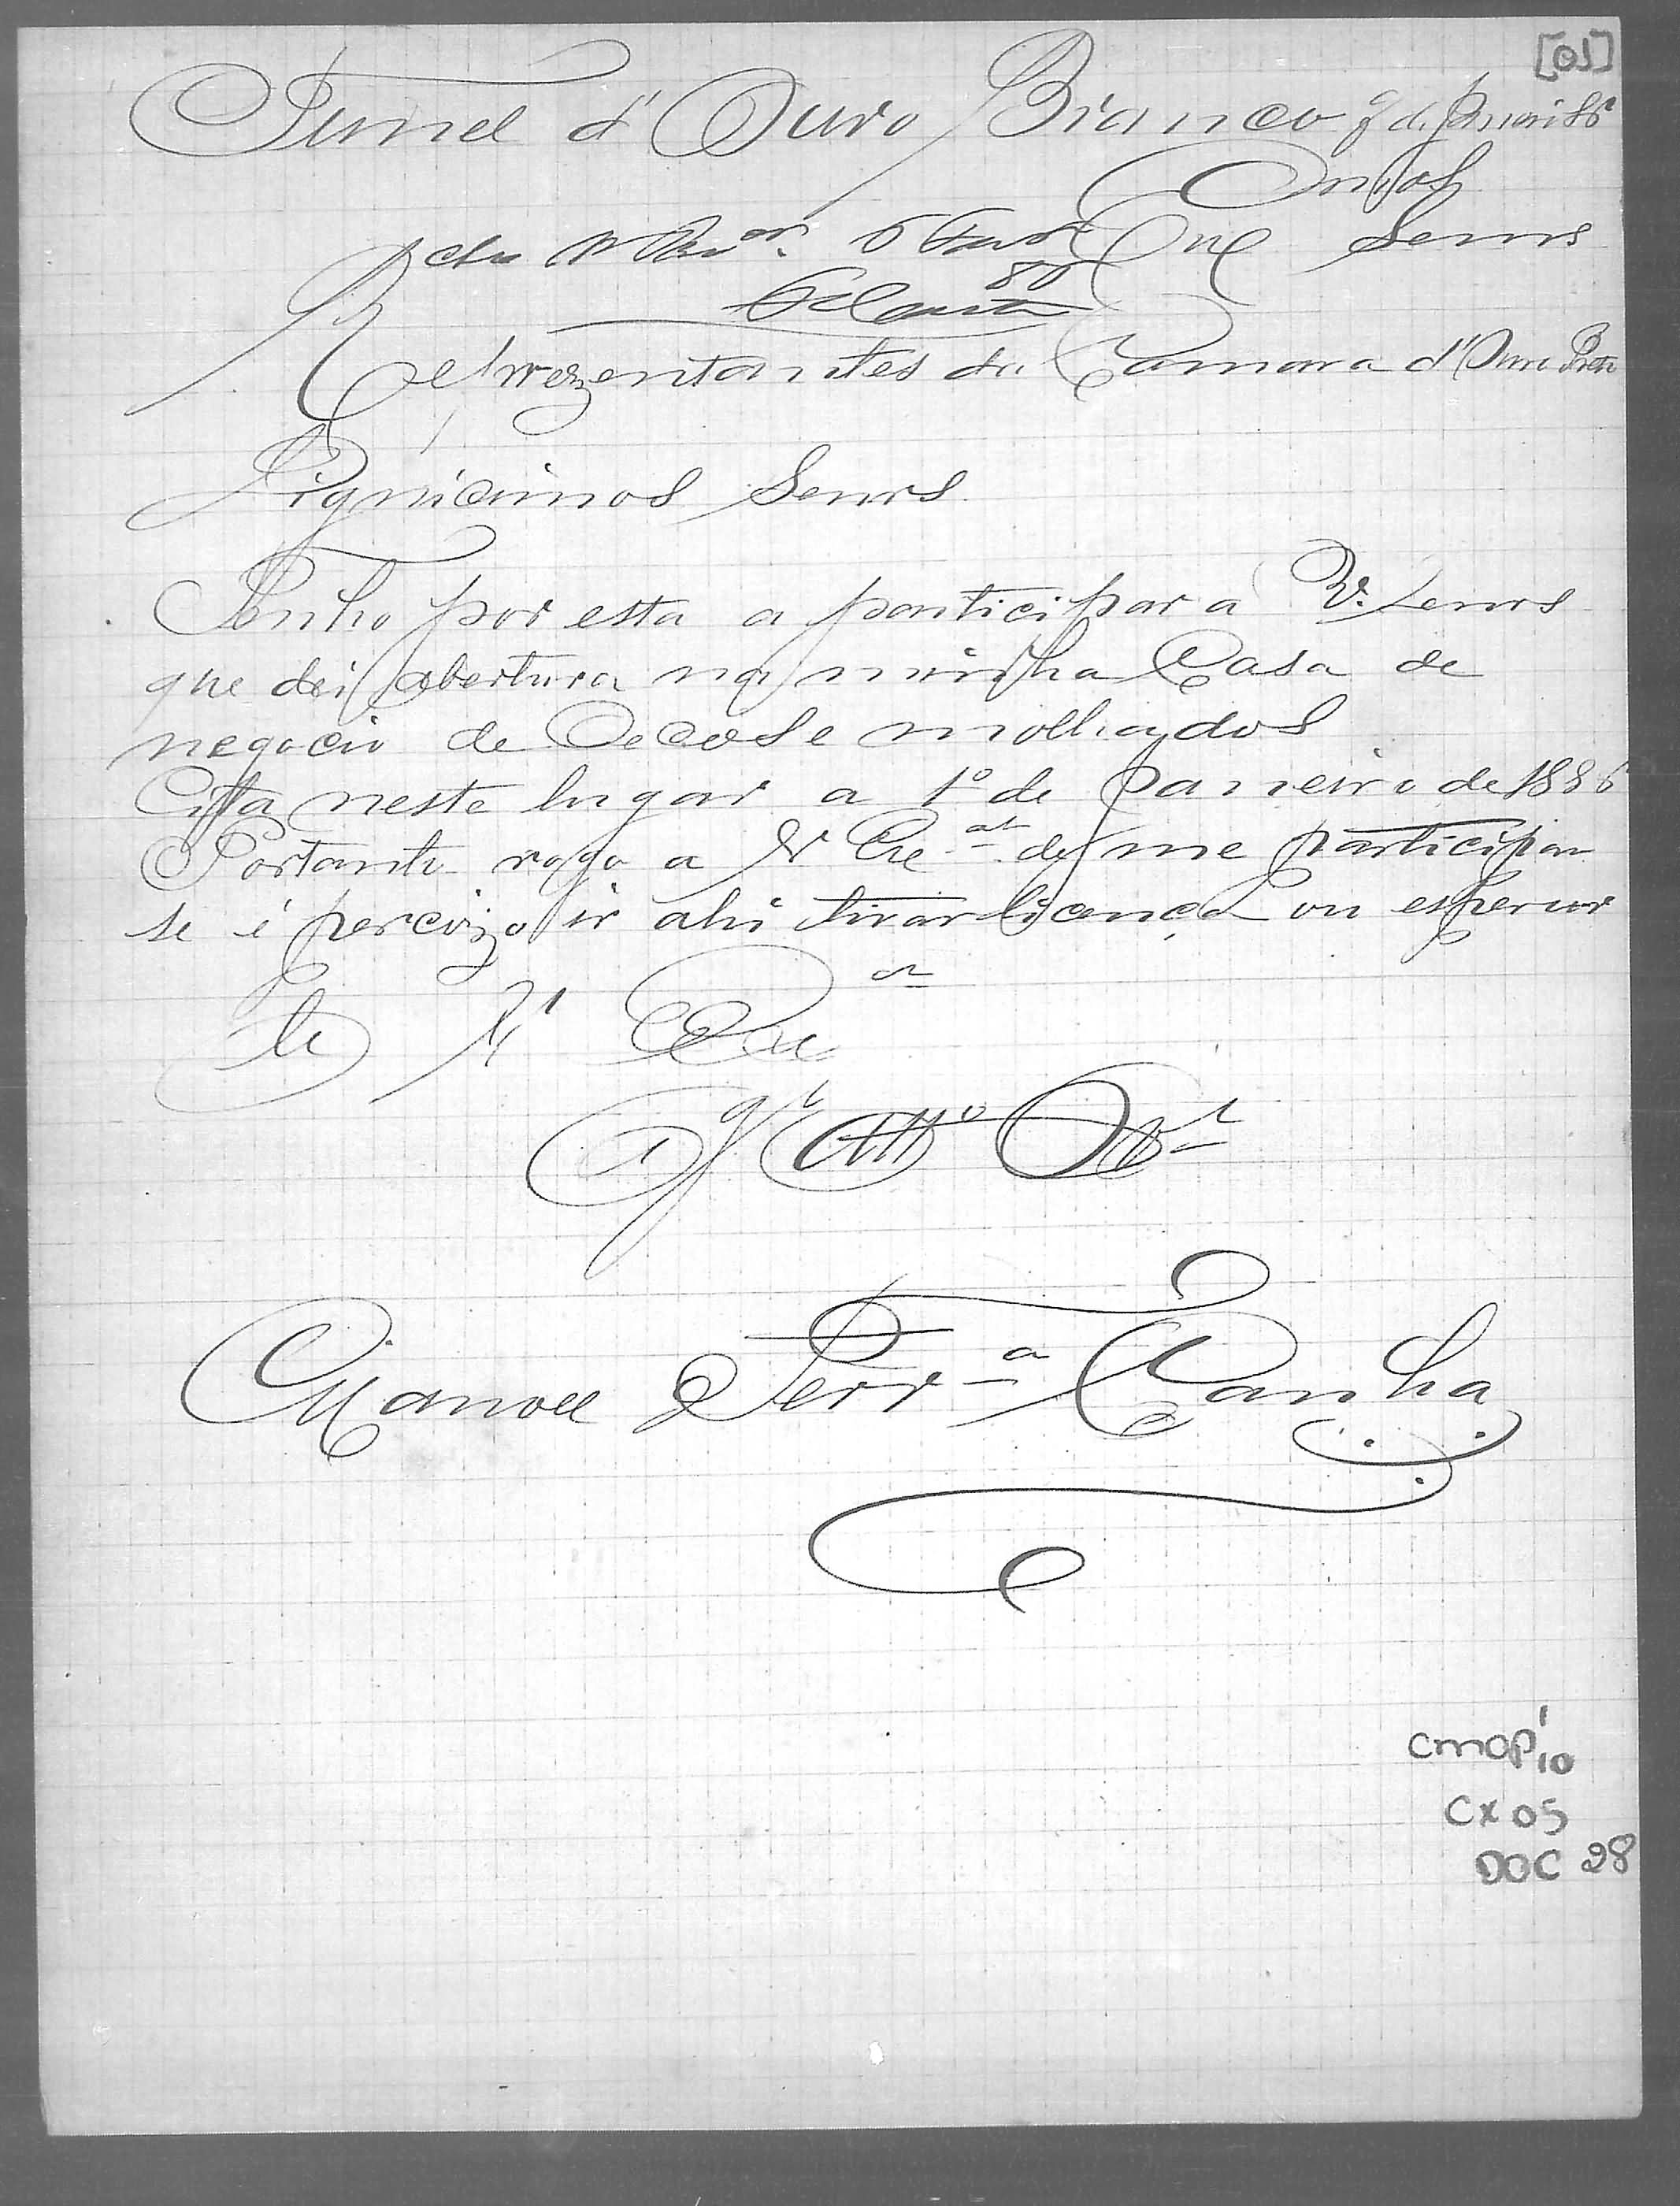 [01]
Tunel d'Ouro Branco 9 de Janeiro 86
Snrs
Representantes da Camara d'Ouro Preto
Dignicimos Senrs
Tenho por esta a participar a V. Senrs
que dei abertura na minha Casa de
negocio de Secos e molhados
Cita neste lugar a 1º de Janeiro de 1886
Portanto rogo a V Exc.as de me participar
se é percizo ir ahi tirar licença ou esperar
De V Exc.as
Att.º
Manoel Ferr.a Canha
CMOP 1
10
CX 05
DOC 28